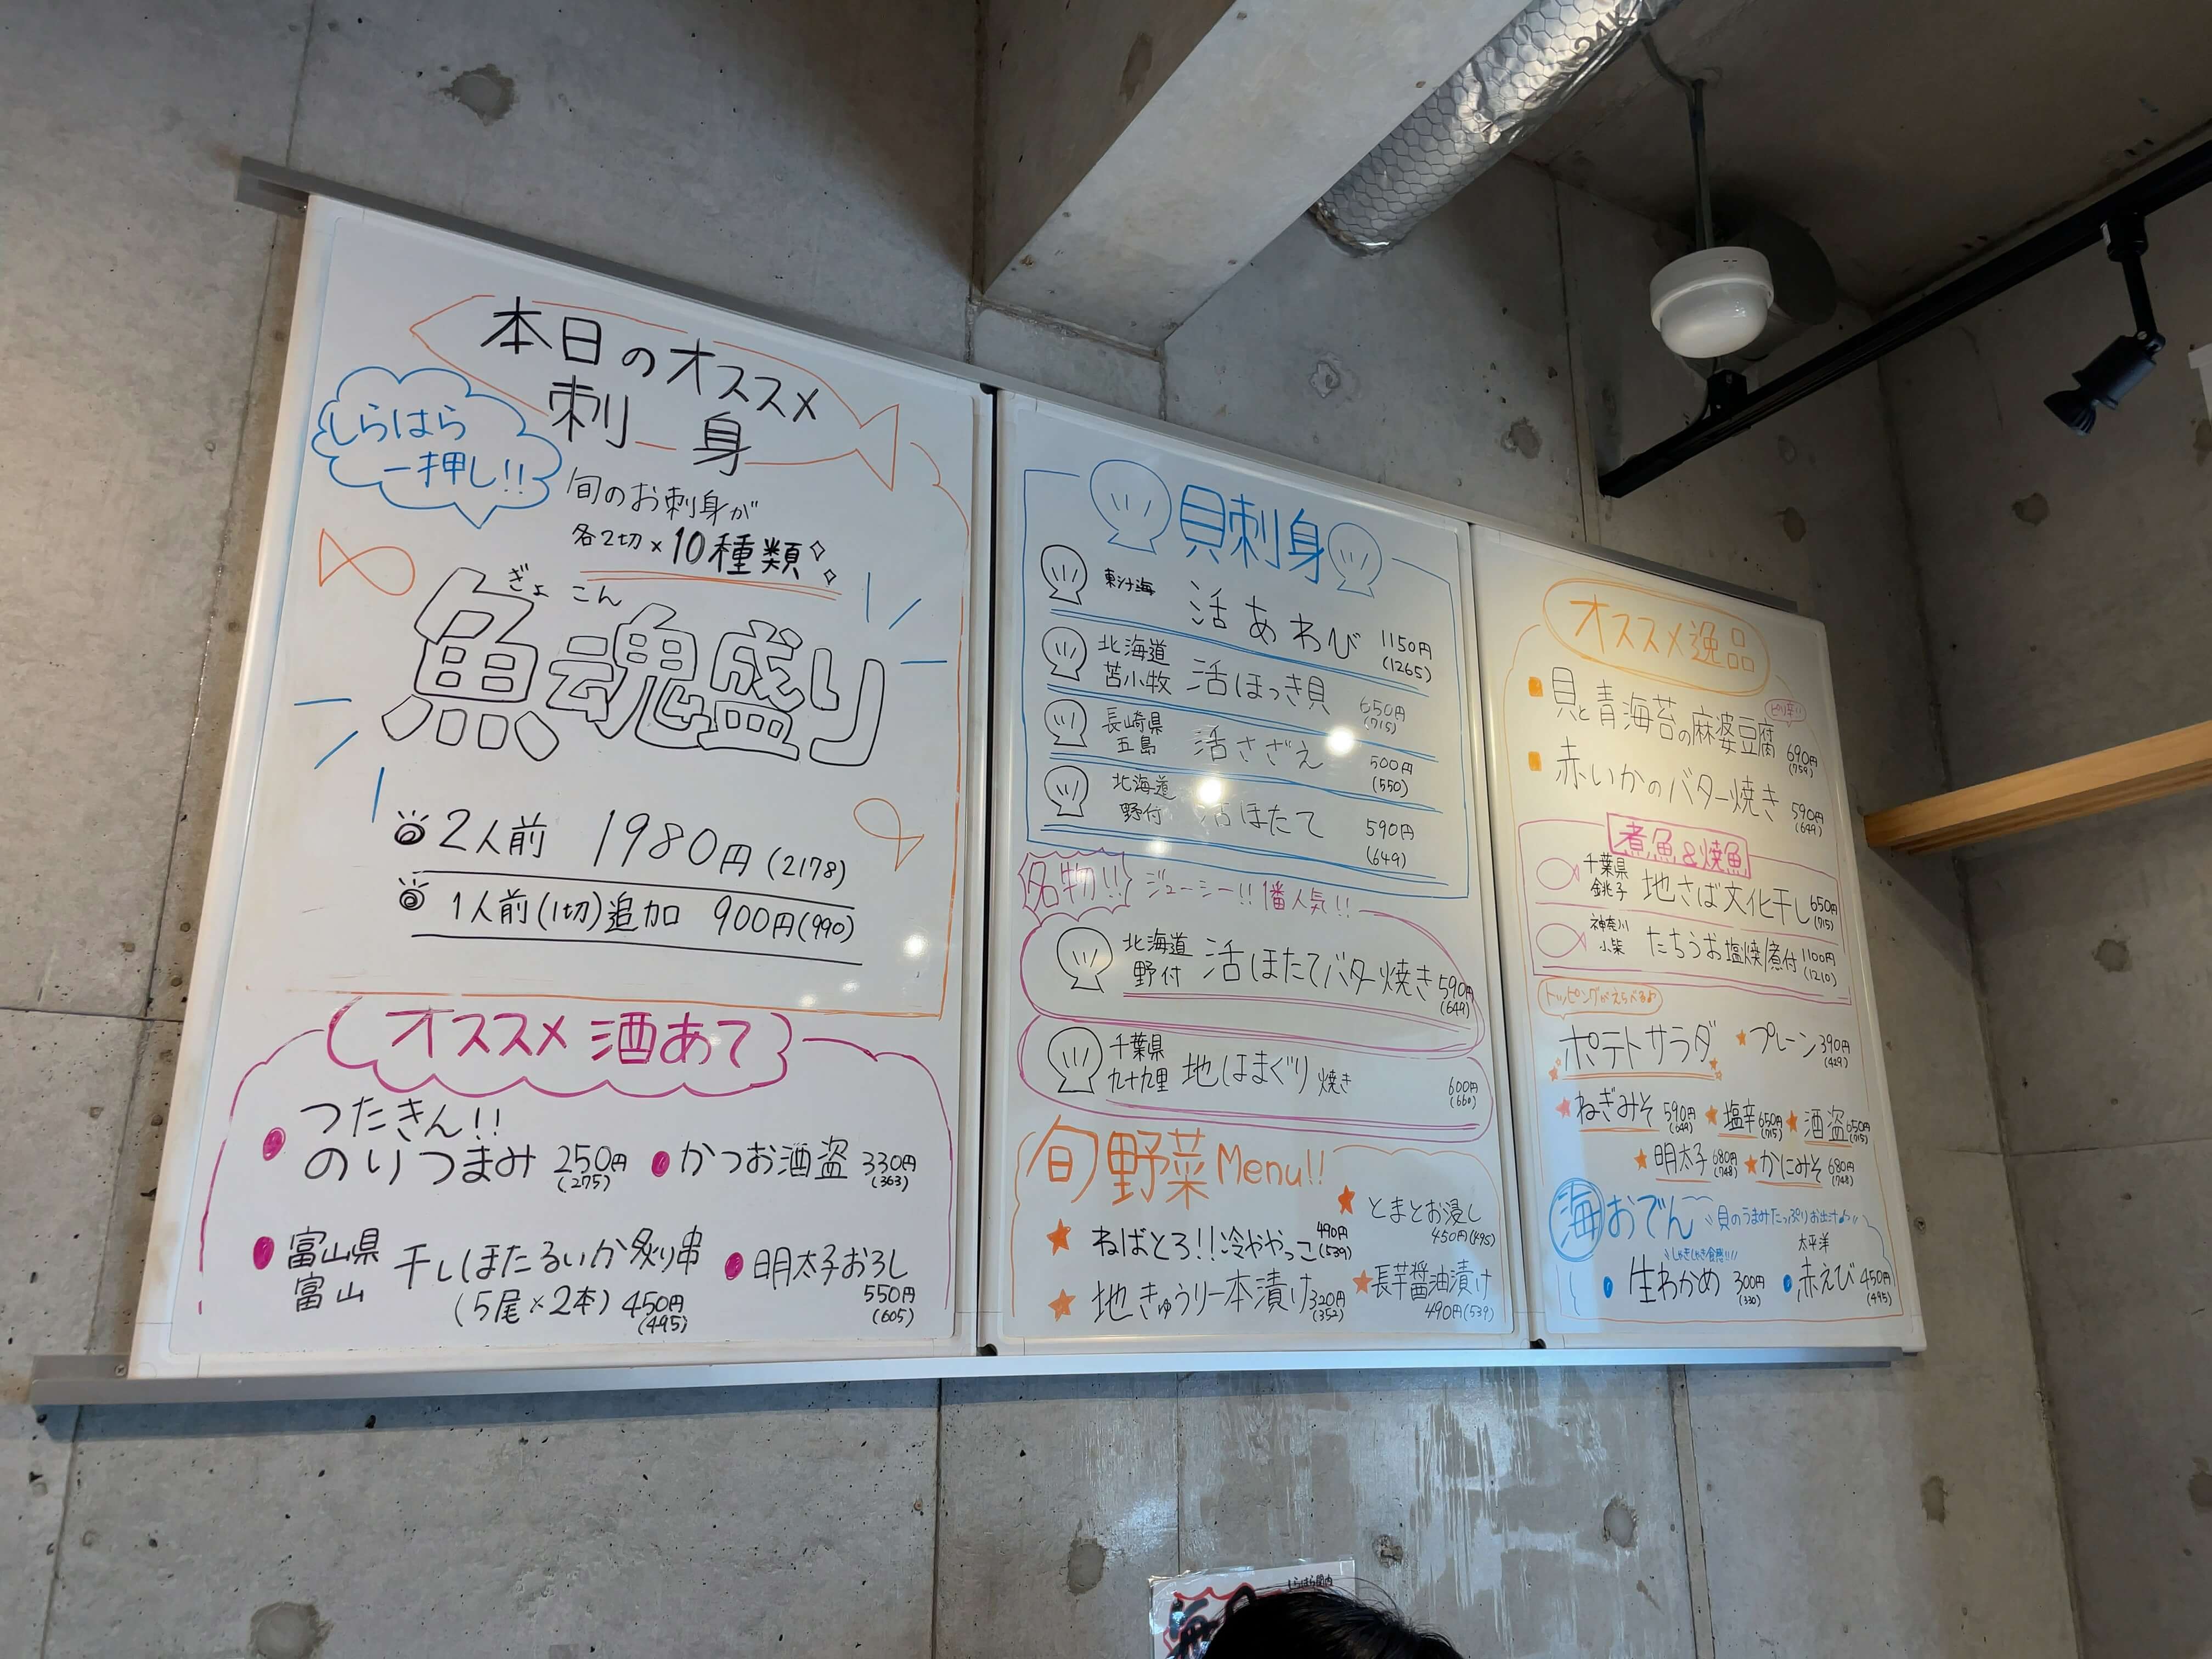 本日のオススメ
刺身
しらはら
一押し!!
旬のお刺身が
各2切×10種類
ぎょ こん
魚魂盛り
2人前 1980円(2178)
1人前(1切)追加 900円(990)
オススメ 酒あて
つたきん!!
のりつまみ 250円
(275)
かつお酒盗 330円
(363)
富山県
富山
干しほたるいか炙り串
(5尾×2本) 450円
(495)
明太子おろし
550円
(605)
貝刺身
東シナ海 活あわび 1150円
(1265)
北海道
苫小牧 活ほっき貝 650円
(715)
長崎県
五島 活さざえ 500円
(550)
北海道
野付 活ほたて 590円
(649)
名物!! ジューシー!! 1番人気!!
北海道
野付 活ほたてバター焼き 590円
(649)
千葉県
九十九里 地はまぐり 焼き 600円
(660)
旬野菜Menu!!
ねばとろ!!冷ややっこ 490円
(539)
とまとお浸し
450円(495)
地きゅうり一本漬け 320円
(352)
長芋醤油漬け
490円(539)
オススメ逸品
貝と青海苔の麻婆豆腐 690円
(759)
ピリ辛!!
赤いかのバター焼き 590円
(649)
煮魚&焼魚
千葉県
銚子 地さば文化干し 650円
(715)
神奈川
小柴 たちうお塩焼/煮付 1100円
(1210)
トッピングがえらべるよ
ポテトサラダ
プレーン 390円
(429)
ねぎみそ 590円
(649)
塩辛 650円
(715)
酒盗 650円
(715)
明太子 680円
(748)
かにみそ 680円
(748)
海おでん
貝のうまみたっぷりお出汁
しゃきしゃき食感!!!
生わかめ 300円
(330)
太平洋
赤えび 450円
(495)
24h
しらはら関内